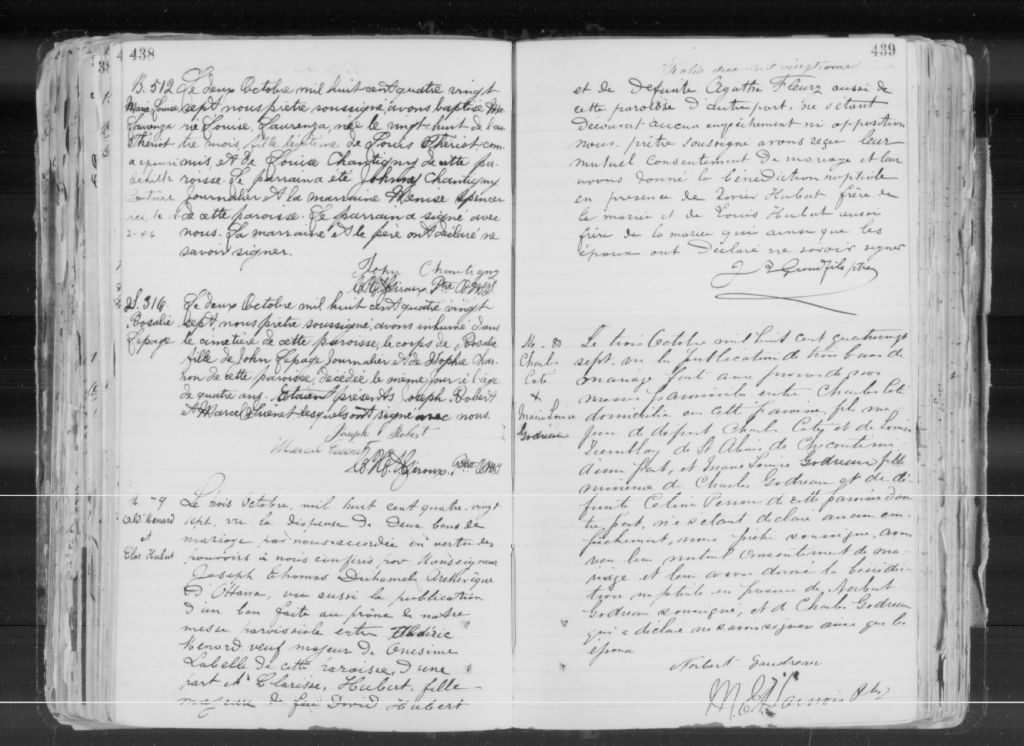 438
B. 512 Le deux Octobre mil huit cent quatre vingt
Marie Louise sept nous prêtre soussigné avons baptisé Ma
Laurenza rie Louise, Laurenza, née le vingt-huit de l'au
Thériot tre mois, fille légitime de Louis Thériot, com
mis et de Louise Chantigny de cette pa
roisse. Le parrain a été Johnny Chantigny
Journalier et la marraine Spencer
de cette paroisse. Le parrain a signé avec
nous. La marraine et le père ont déclaré ne
savoir signer.
John Chantigny
Ptre
S. 316. Le deux Octobre mil huit cent quatre vingt
Rosalie sept, nous prêtre soussigné, avons inhumé dans
Lepage le cimetière de cette paroisse, le corps de Rosalie
fille de John Lepage Journalier et de Sophie
de cette paroisse, décédée le même jour à l'âge
de quatre ans. Etaient présents Joseph Hobert
et Marcel lesquels ont signé avec nous.
Joseph Hobert
Marcel
Giroux, Ptre
M - 9 Le trois octobre, mil huit cent quatre, vingt
sept, vu la dispense de deux bans de
Menard mariage par nous accordée en vertu des
et pouvoirs à nous conférés, par Monseigneur
Hubert Joseph Thomas Duhamel Archevêque
d'Ottawa, vu aussi la publication
d'un ban faite au prône de notre
messe paroissiale entre
Menard veuf majeur de Onesime
Labelle de cette paroisse, d'une
part et Clarisse, Hubert, fille
majeure de feu David Hubert
439
et de défunte Agathe Fleury aussi de
cette paroisse d'autre part, ne s'étant
découvert aucun empêchement ni opposition
nous, prêtre soussigné avons reçu leur
mutuel consentement de mariage et leur
avons donné la bénédiction nuptiale
en présence de Xavier Hubert frère de
la mariée et de Louis Hubert aussi
frère de la mariée qui ainsi que les
époux ont déclaré ne savoir signer
ptre
M - 80 Le trois Octobre mil huit cent quatre vingt
Charles sept, vu la publication de trois bans de
Coté mariage fait aux prônes de nos
+ messes paroissiales entre Charles Coté
Marie Louise domicilié en cette paroisse, fils ma
Godreau jeur de défunt Charles Coté et de Louise
Tremblay de St Alexis, de Chicoutimi
d'une part, et Marie Louise Godreau fille
mineure de Charles Godreau et de dé
funte Celina Perron de cette paroisse d'au
tre part, ne s'étant déclaré aucun em
pêchement, nous prêtre soussigné, avons
reçu leur mutuel consentement de ma
riage et leur avons donné la bénédic
tion nuptiale en présence de Norbert
Godreau soussigné, et de Charles Godreau
qui a déclaré ne savoir signer ainsi que les
époux
Norbert Gaudreau